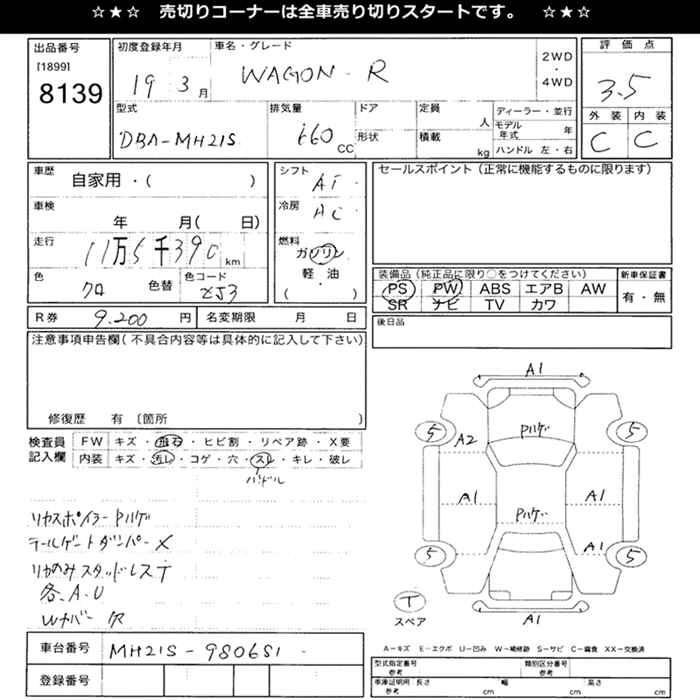 ☆★☆ 売切りコーナーは全車売り切りスタートです。 ☆★☆
出品番号
[1899]
8139
初度登録年月
19 3 月
車名・グレード
WAGON-R
2WD
・
4WD
評価点
3.5
外装 内装
C C
型式
DBA-MH21S
排気量
660 CC
ドア
形状
定員
人
積載
kg
ディーラー・並行
モデル年式 年
ハンドル 左・右
車歴
自家用・( )
車検
年 月( 日)
走行
11万5千390 km
色
クロ
色替
色コード
ZJ3
シフト
AT
冷房
AC
燃料
ガソリン
軽・油
・
( )
セールスポイント(正常に機能するものに限ります)
装備品(純正品に限り○をつけてください)
PS PW ABS エアB AW
SR ナビ TV カワ
新車保証書
有・無
R券 9.200 円
名変期限 月 日
後日品
注意事項申告欄(不具合内容等は具体的に記入して下さい)
修復歴 有 〔箇所 〕
検査員
記入欄
FW キズ・飛石・ヒビ割・リペア跡・X要
内装 キズ・汚レ・コゲ・穴・スレ・キレ・破レ
ハンドル
リヤスポイラーPハゲ
テールゲートダンパーX
リヤのみスタッドレスT
各.A.U
Wカバー欠
A1
5
5
A2
Pハゲ
A1
A1
Pハゲ
A1
5
5
T
スペア
A1
A-キズ E-エクボ U-凹み W-補修跡 S-サビ C-腐食 XX-交換済
車台番号
MH21S-980651
登録番号
型式指定番号
参考
類別区分番号
参考
車庫証明用
参考
長さ cm
幅 cm
高さ cm